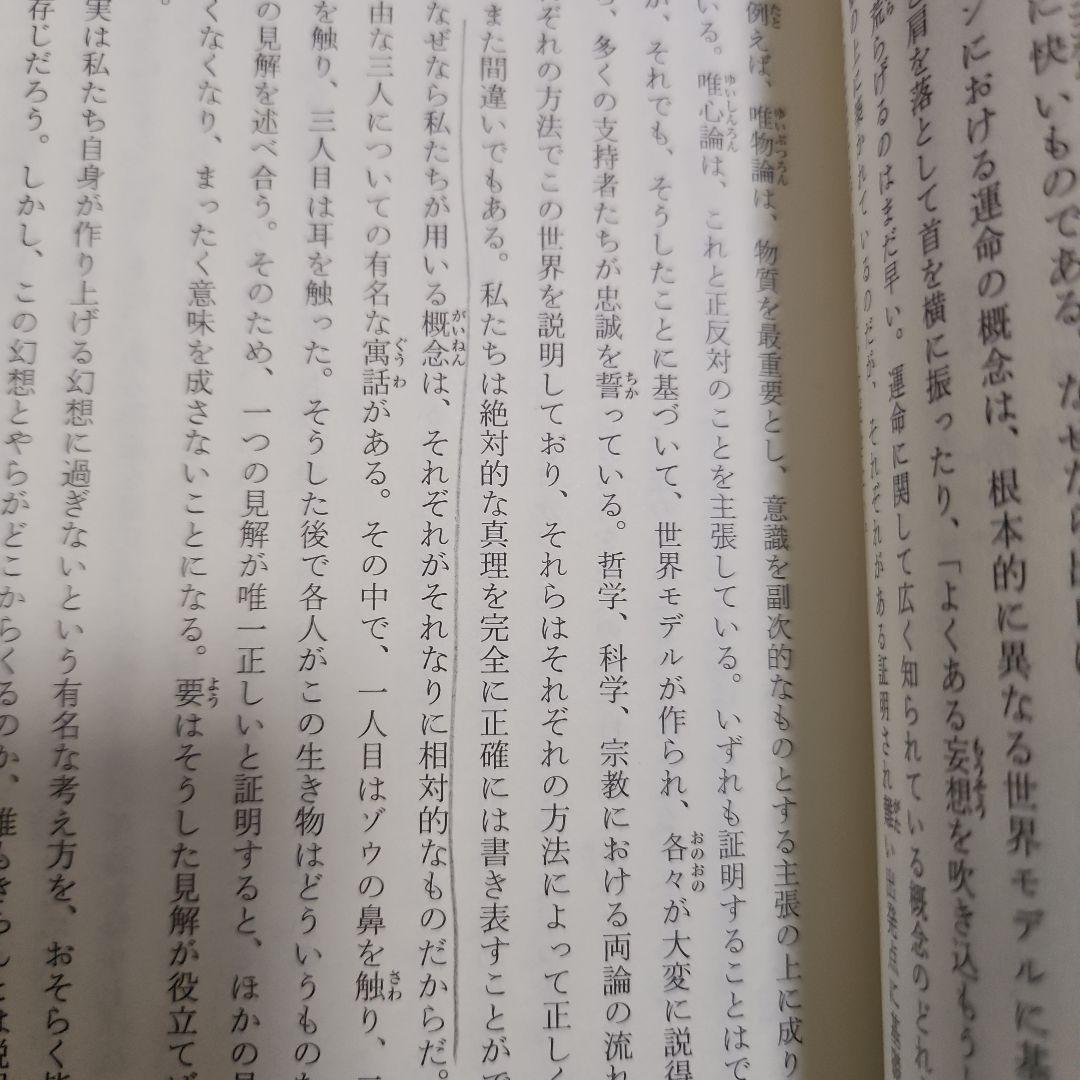 に快いものである。なぜなら
ンにおける運命の概念は、根本的に異なる世界モデルに基
肩を落として首を横に振ったり、「よくある妄想を吹き込もうと
荒らげるのはまだ早い。運命に関して広く知られている概念のどれ
の上に築かれているのだが、それぞれがある証明され難い出発点に基
例えば、唯物論は、物質を最重要とし、意識を副次的なものとする主張の上に成り
いる。唯心論は、これと正反対のことを主張している。いずれも証明することはで
が、それでも、そうしたことに基づいて、世界モデルが作られ、各々が大変に説得
ら、多くの支持者たちが忠誠を誓っている。哲学、科学、宗教における両論の流れ
ぞれの方法でこの世界を説明しており、それらはそれぞれの方法によって正しく
また間違いでもある。私たちは絶対的な真理を完全に正確には書き表すことがで
なぜなら私たちが用いる概念は、それぞれがそれなりに相対的なものだからだ。
由な三人についての有名な寓話がある。その中で、一人目はゾウの鼻を触り、
を触り、三人目は耳を触った。そうした後で各人がこの生き物はどういうもの
の見解を述べ合う。そのため、一つの見解が唯一正しいと証明すると、ほかの見
くなくなり、まったく意味を成さないことになる。要はそうした見解が役立てば
。
実は私たち自身が作り上げる幻想に過ぎないという有名な考え方を、おそらく
存じだろう。しかし、この幻想とやらがどこからくるのか、誰もきちんとは説